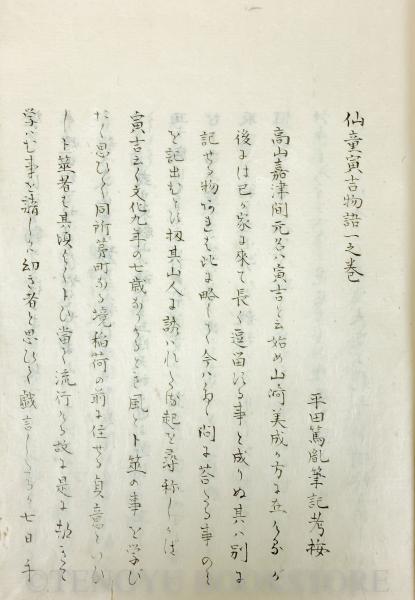 仙童寅吉物語一之巻
平田篤胤筆記考按
高山嘉津間元名ハ寅吉と云始め山崎美成か方に在しか
後には己か家に來て長く逗留したる事と成りぬ其ハ別に
記せる物あれは此に略して今ハ只問に荅たる事のミ
を記出むとす扨其山人に誘ハれたる濫起を尋称しかは
寅吉云く文化九年の七歳なりけるとき風とト筮の事を学び
たく思ひしに同所茅町なる境稲荷の前に住せる貞意といひ
しト筮者も其頃よくトひ當て流行たる故に是に就きて
学バむ事を請しに幼き者と思ひて戯言したるか七日手
©TENGYU BOOKSTORE